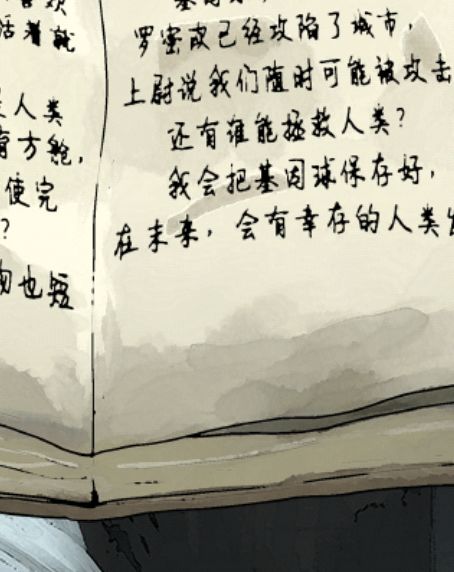 活着就
人类
方舱，
使完
？
物也短
罗密皮已经攻陷了城市，
上尉说我们随时可能被攻击
还有谁能拯救人类？
我会把基因球保存好，
在未来，会有幸存的人类